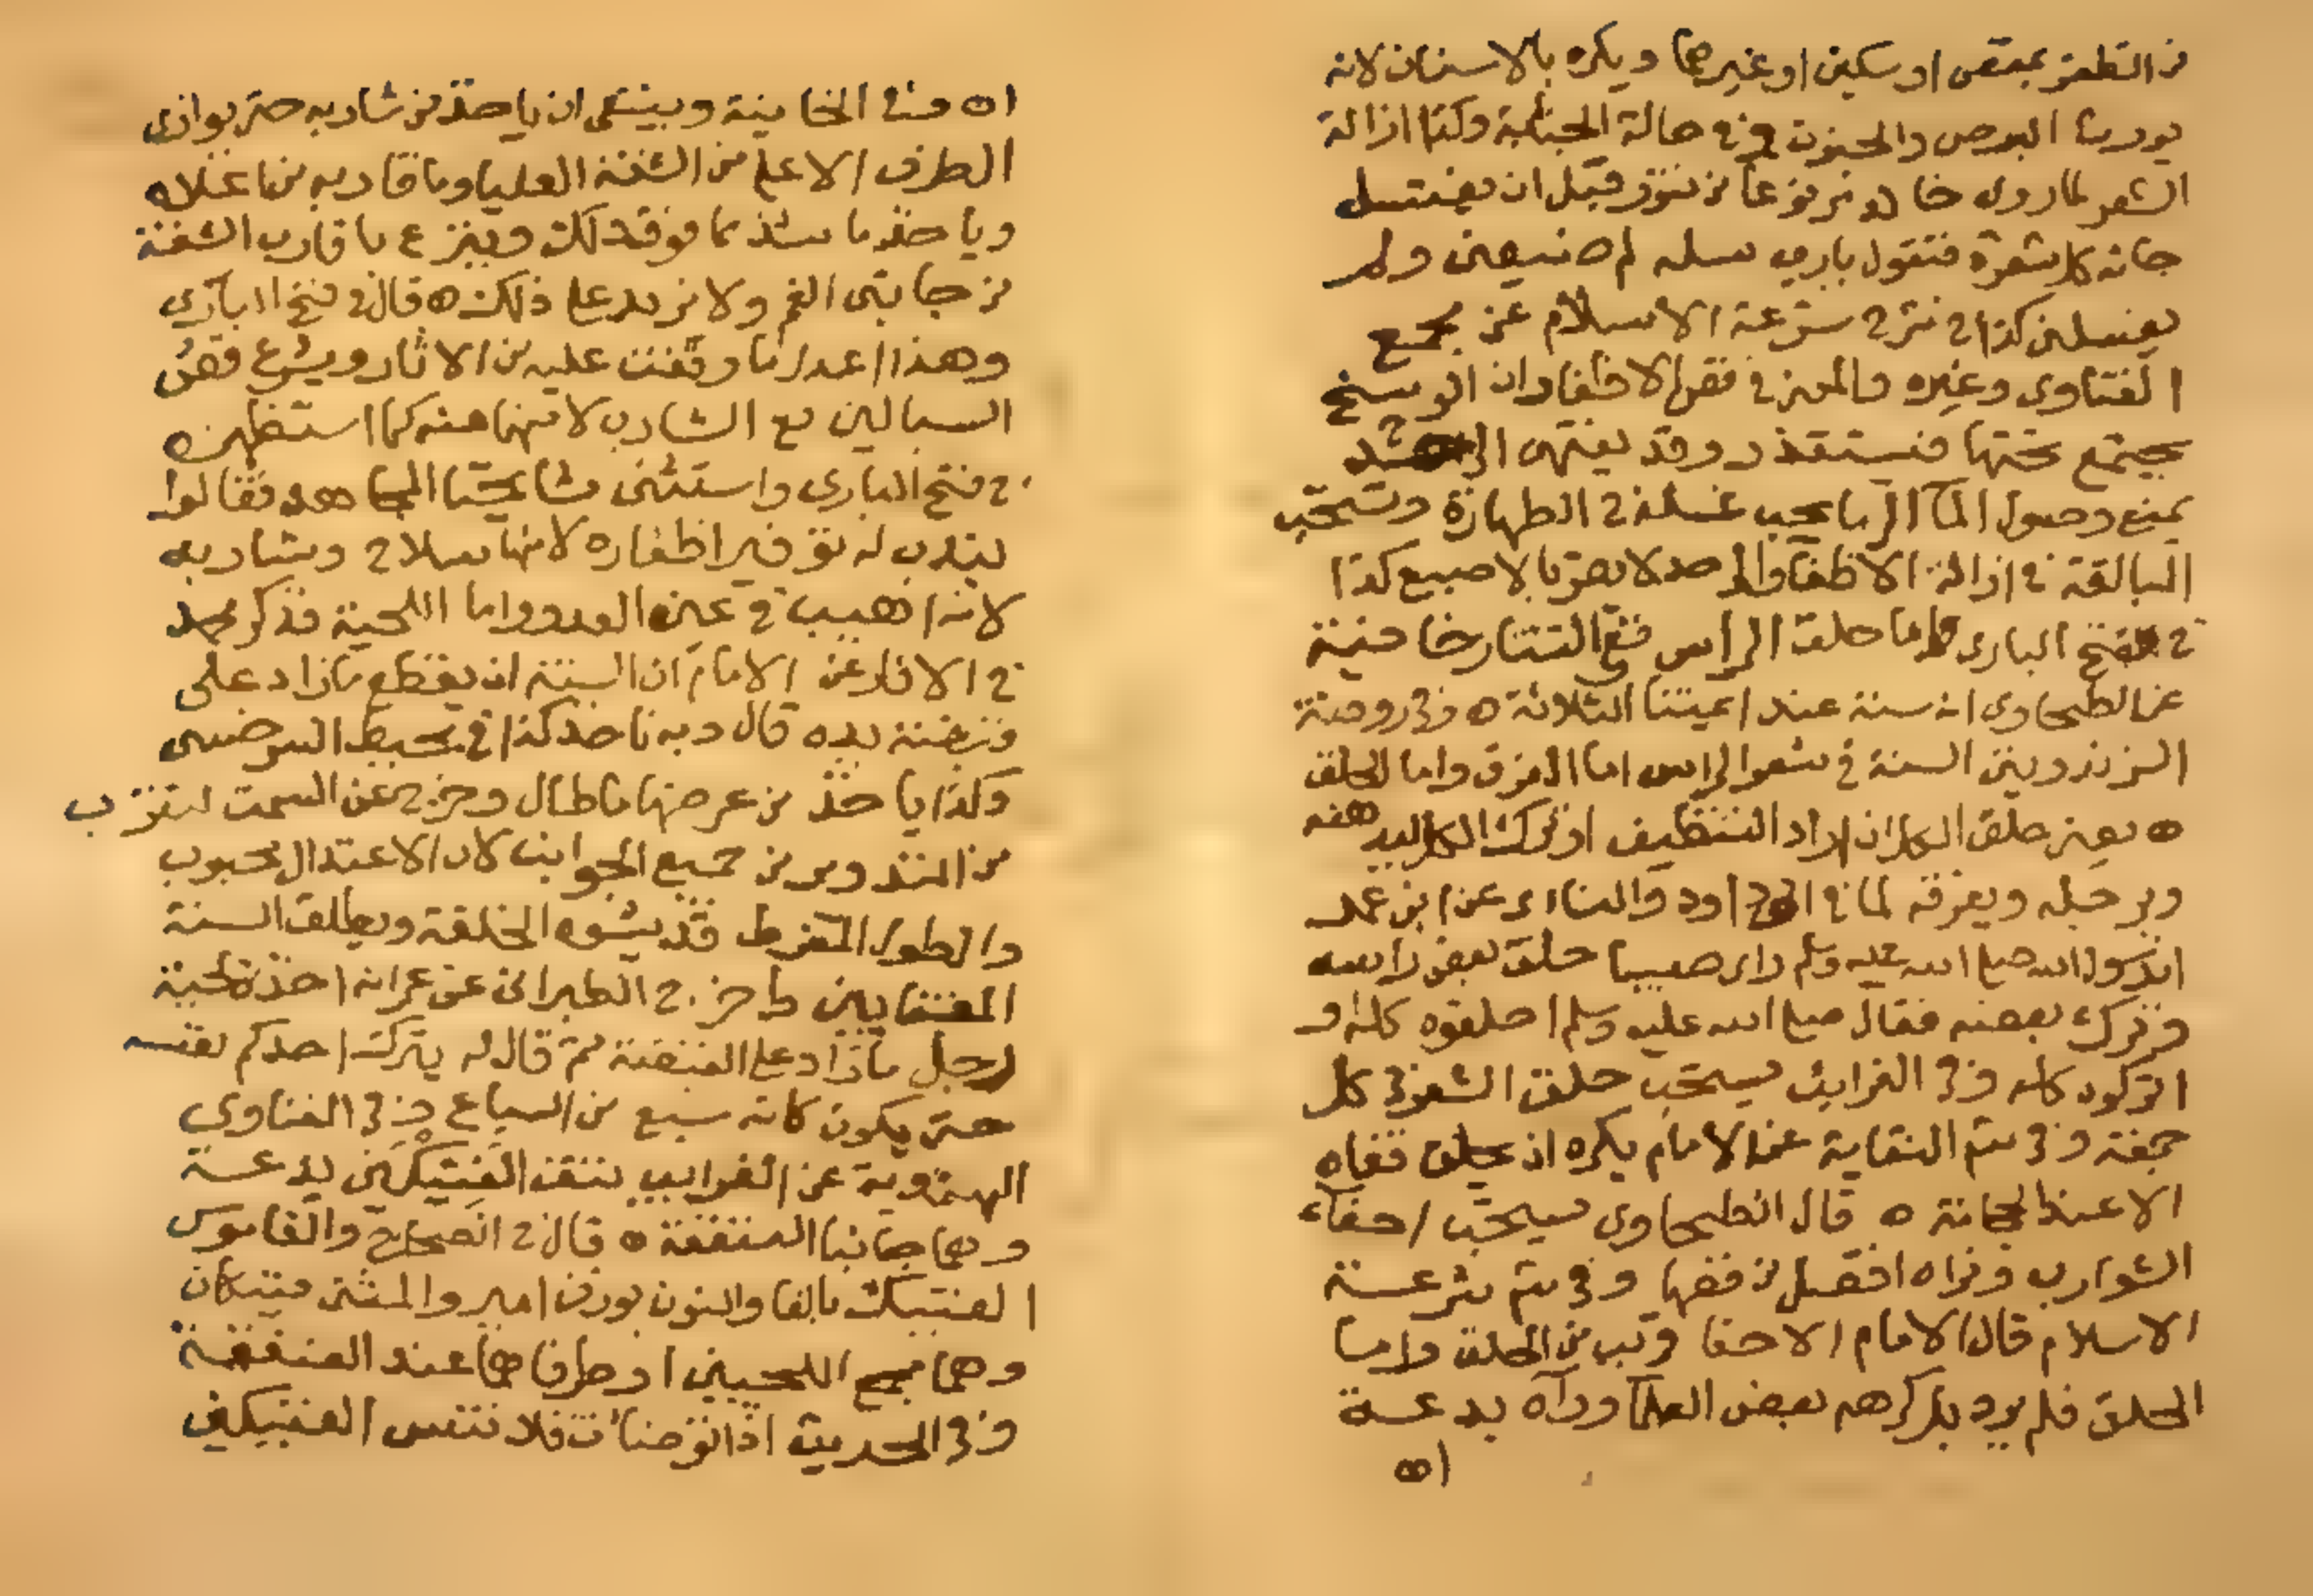 من الظفر بمقص او سكين او غيرهما ويكره بالاسنان لانه
يورث البرص والجنون وفي حالة الجنابة وكذا ازالة
الشعر لما روى خالد مرفوعا من تنور قبل ان يغتسل
جاته كل شعرة فتقول يارب سله لم ضيعني ولم
يغسلني كذا في شرح شرعة الاسلام عن مجمع
الفتاوى وغيره والمعنى في قص الاظفار ان الوسخ
يجتمع تحتها فيستقذر وقد ينتهي الى حد
يمنع وصول الماء الى ما يجب غسله في الطهارة وتستحب
المبالغة في ازالة الاظفار الى حد لا يضر بالاصبع كذا
في فتح الباري واما حلق الراس ففي التتارخانية
عن الطحاوي انه سنة عند ائمتنا الثلاثة ه وفي روضة
الزندويتي السنة في شعر الراس اما الفرق واما الحلق
ه يعني حلق الكل ان اراد التنظيف او ترك الكل ليدهنه
ويرجله ويفرقه لما في ابي داود والنسائي عن ابن عمر
ان رسول الله صلى الله عليه وسلم راى صبيا حلق بعض راسه
وترك بعضه فقال صلى الله عليه وسلم احلقوه كله او
اتركوه كله وفي الغرايب يستحب حلق الشعر في كل
جمعة وفي شرح النقاية عن الامام يكره ان يحلق قفاه
الا عند الحجامة ه قال الطحاوي يستحب احفاء
الشوارب ونراه افضل من قصها وفي شرح شرعة
الاسلام قال الامام الاحفا قريب من الحلق واما
الحلق فلم يرد بل كرهه بعض العلما ورآه بدعة
اه
اه وفي الخانية وينبغي ان ياخذ من شاربه حتى يوازي
الطرف الاعلى من الشفة العليا وما قاربه من اعلاه
وياخذ ما شذ مما فوق ذلك وينزع ما قارب الشفة
من جانبي الفم ولا يزيد على ذلك ه قال في فتح الباري
وهذا اعدل ما وقفت عليه من الاثار ويشرع قص
السبالين مع الشارب لانهما منه كما استظهره
في فتح الباري واستثنى مشايخنا المجاهد فقالوا
يندب له توفير اظفاره لانها سلاح وشاربه
لانه اهيب في عين العدو واما اللحية فذكر محمد
في الاثار عن الامام ان السنة ان يقطع ما زاد على
قبضة يده قال وبه ناخذ كذا في محيط السرخسي
وكذا ياخذ من عرضها ما طال وخرج عن السمت لتقرب
من التدوير من جميع الجوانب لان الاعتدال محبوب
والطول المفرط قد يشوه الخلقة ويطلق السنة
المغتابين واخرج الطبراني عن عمر انه اخذ من لحية
رجل ما زاد على القبضة ثم قال له يترك احدكم نفسه
حتى يكون كانه سبع من السباع وفي الفتاوي
الهندية عن الغرايب نتف الفنيكين بدعة
وهما جانبا العنفقة ه قال في الصحاح والقاموس
الفنيك بالفا والنون بوزن امير والمثنى فنيكان
وهما مجمع اللحيين او طرفاهما عند العنفقة
وفي الحديث اذا توضات فلا تنس الفنيكين